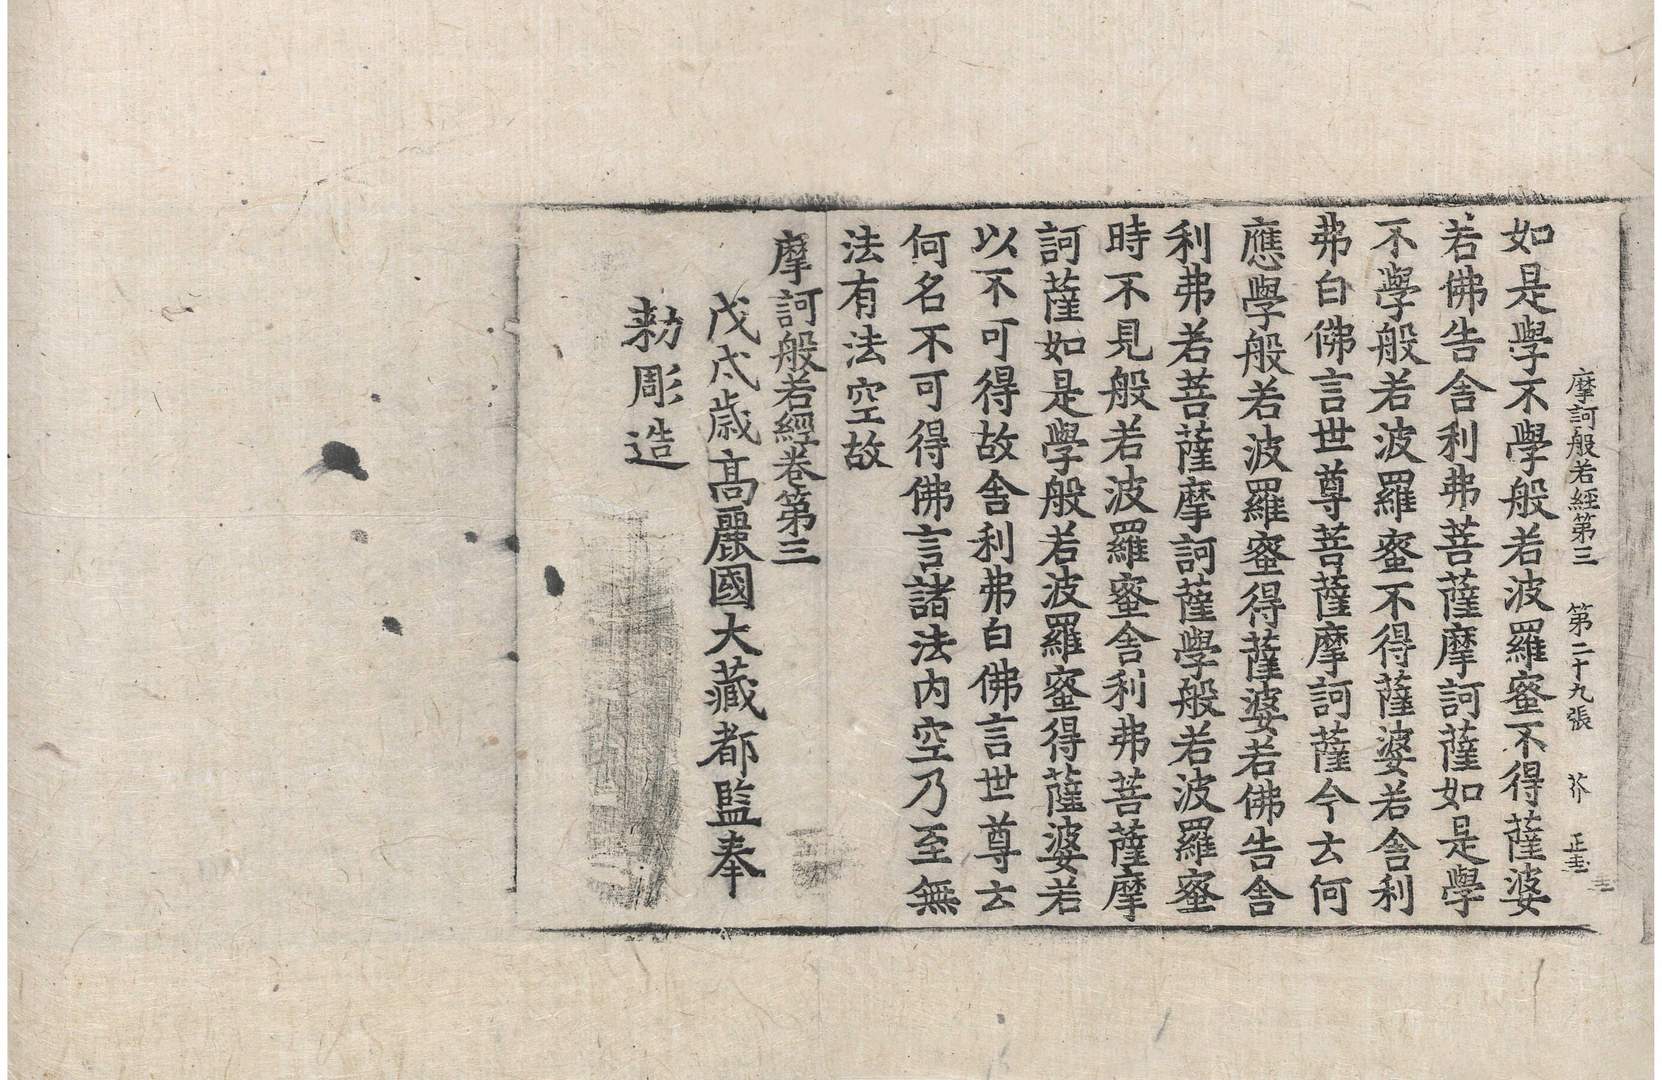 摩訶般若經第三 第二十九張 芥 正
如是學不學般若波羅蜜不得薩婆
若佛告舍利弗菩薩摩訶薩如是學
不學般若波羅蜜不得薩婆若舍利
弗白佛言世尊菩薩摩訶薩今云何
應學般若波羅蜜得薩婆若佛告舍
利弗若菩薩摩訶薩學般若波羅蜜
時不見般若波羅蜜舍利弗菩薩摩
訶薩如是學般若波羅蜜得薩婆若
以不可得故舍利弗白佛言世尊云
何名不可得佛言諸法內空乃至無
法有法空故
摩訶般若經卷第三
戊戌歲高麗國大藏都監奉
勅彫造